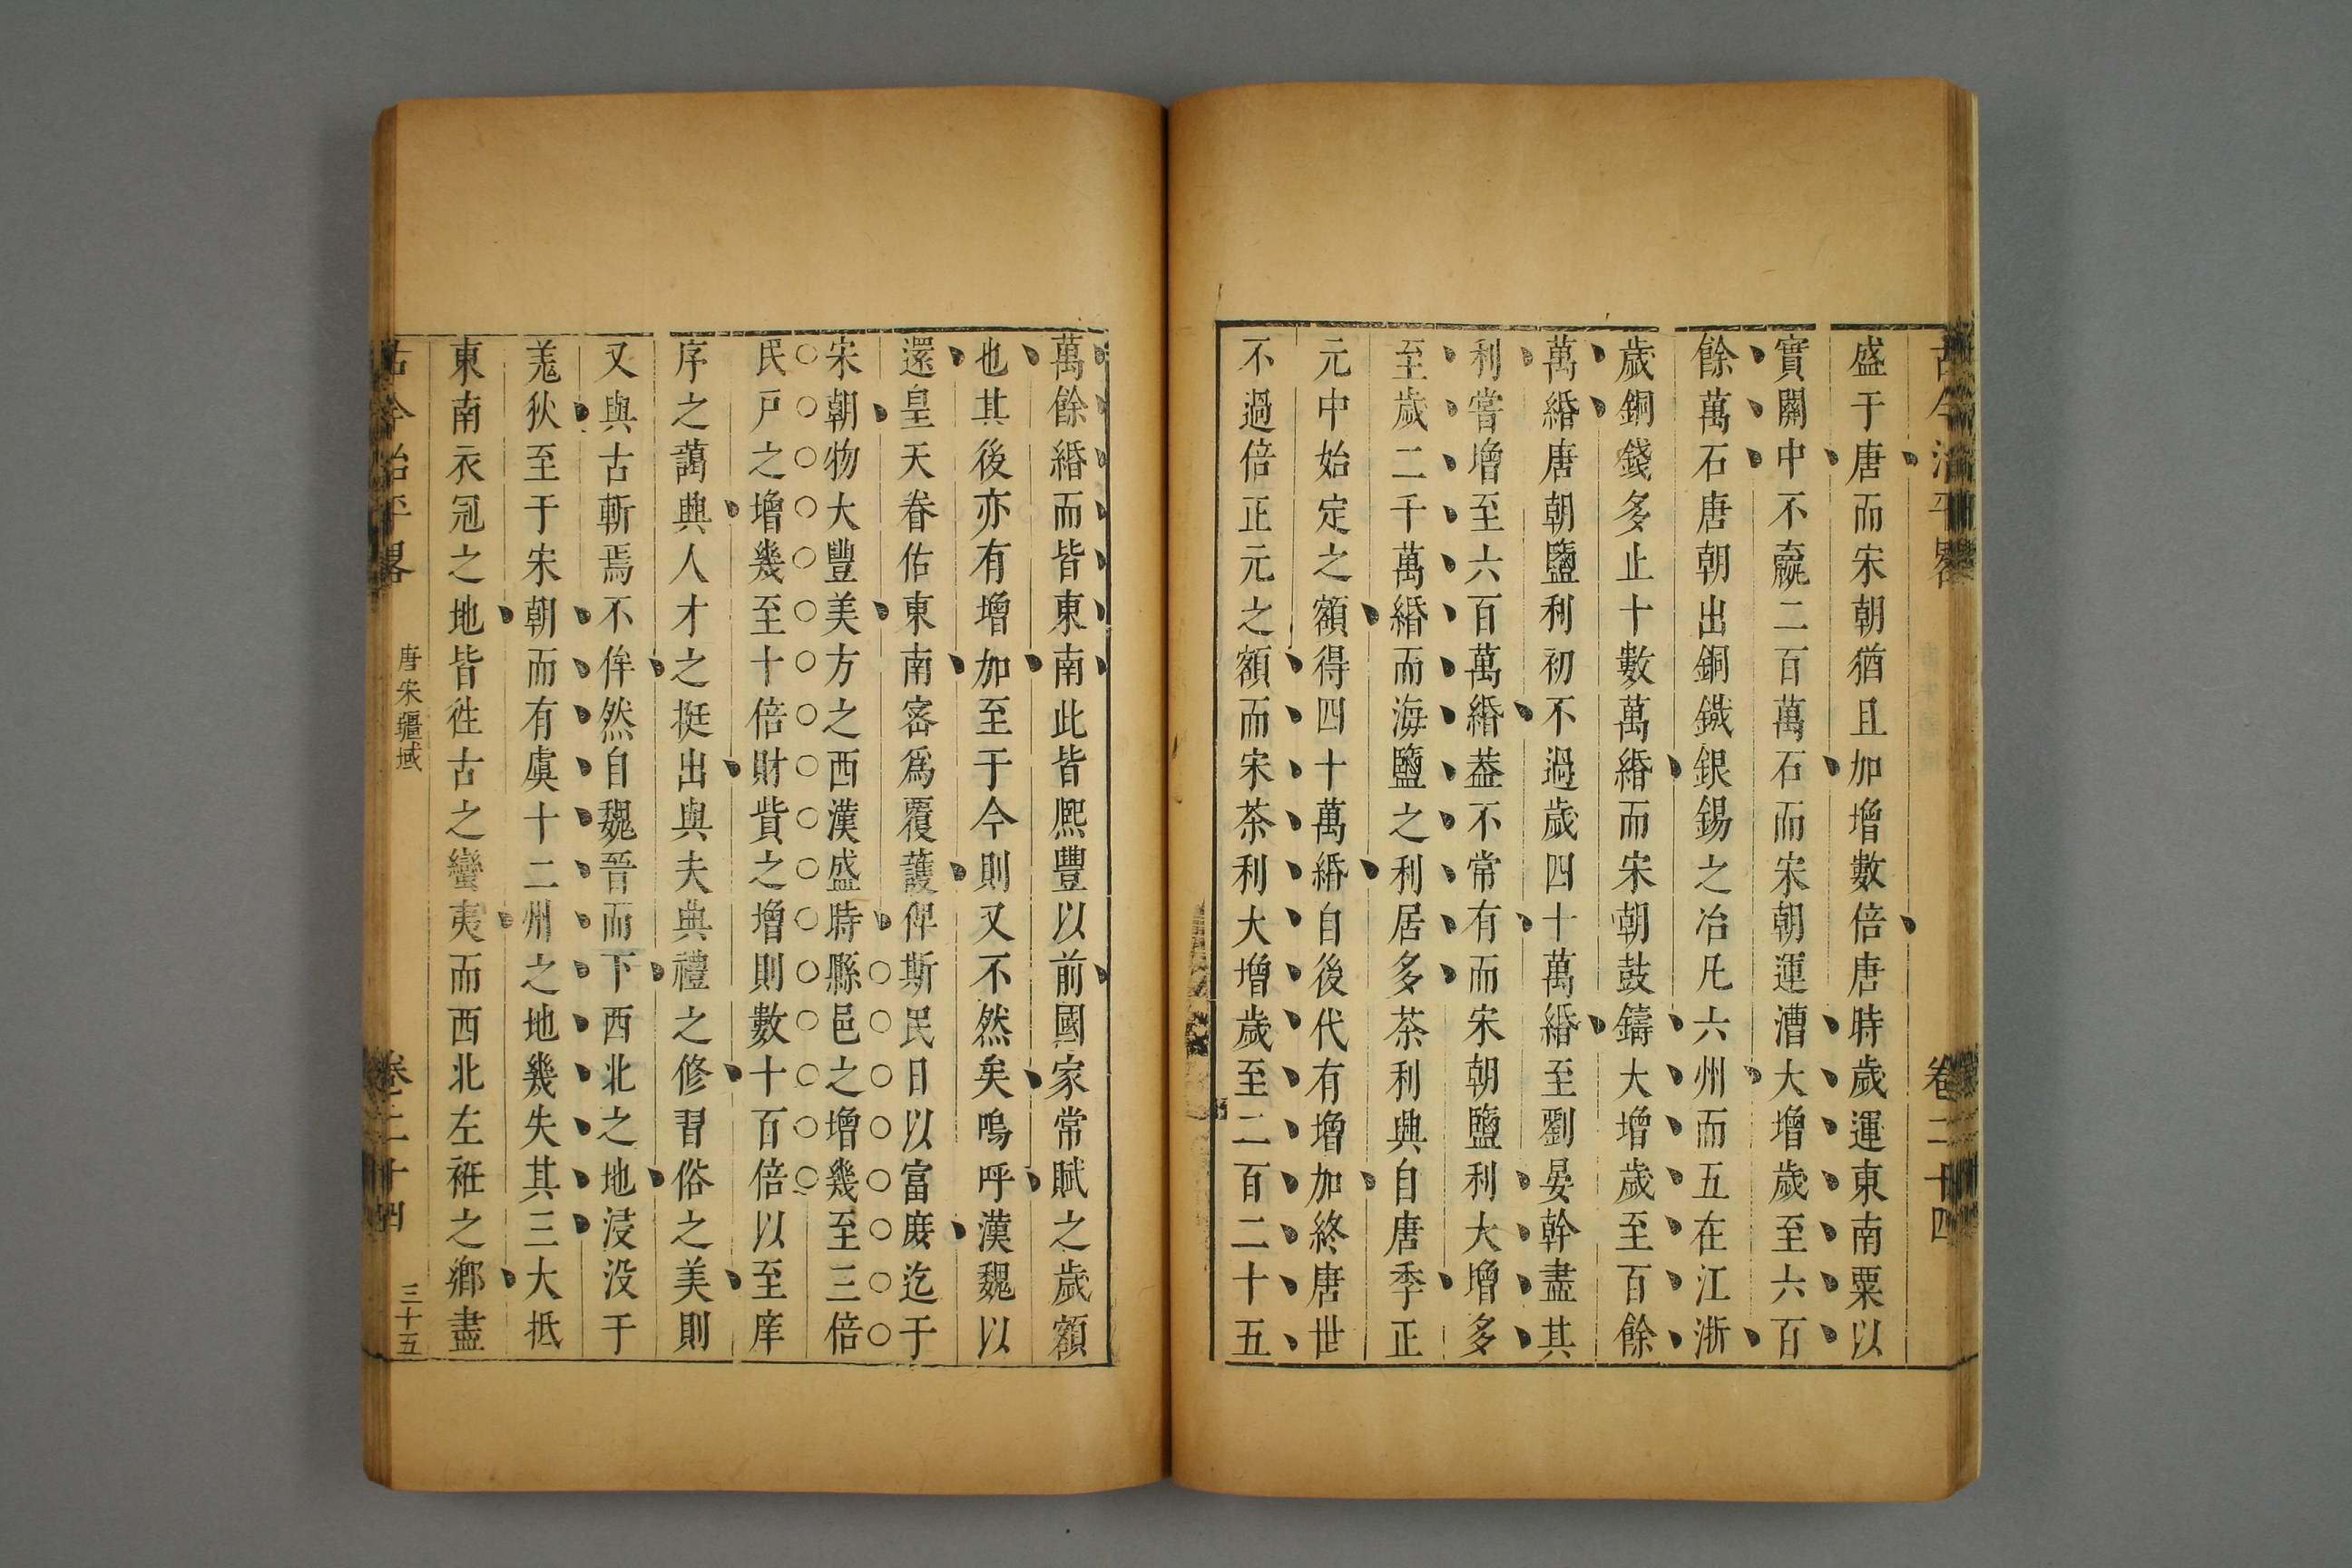 古今治平畧 卷二十四
盛于唐而宋朝猶且加增數倍唐時歲運東南粟以
實關中不齍二百萬石而宋朝運漕大增歲至六百
餘萬石唐朝出銅鐵銀錫之冶凡六州而五在江浙
歲銅錢多止十數萬緡而宋朝鼓鑄大增歲至百餘
萬緡唐朝鹽利初不過歲四十萬緡至劉晏幹盡其
利嘗增至六百萬緡葢不常有而宋朝鹽利大增多
至歲二千萬緡而海鹽之利居多茶利興自唐季正
元中始定之額得四十萬緡自後代有增加終唐世
不過倍正元之額而宋茶利大增歲至二百二十五
萬餘緡而皆東南此皆熈豐以前國家常賦之歲額
也其後亦有增加至于今則又不然矣嗚呼漢魏以
還皇天眷佑東南宻爲覆護俾斯民日以富庻迄于
宋朝物大豐美方之西漢盛時縣邑之增幾至三倍
民戸之增幾至十倍財貲之增則數十百倍以至庠
序之藹興人才之挺出與夫典禮之修習俗之美則
又與古斬焉不侔然自魏晉而下西北之地浸没于
羗狄至于宋朝而有虞十二州之地幾失其三大抵
東南衣冠之地皆徃古之蠻夷而西北左袵之鄉盡
古今治平畧 唐宋疆域 卷二十四 三十五